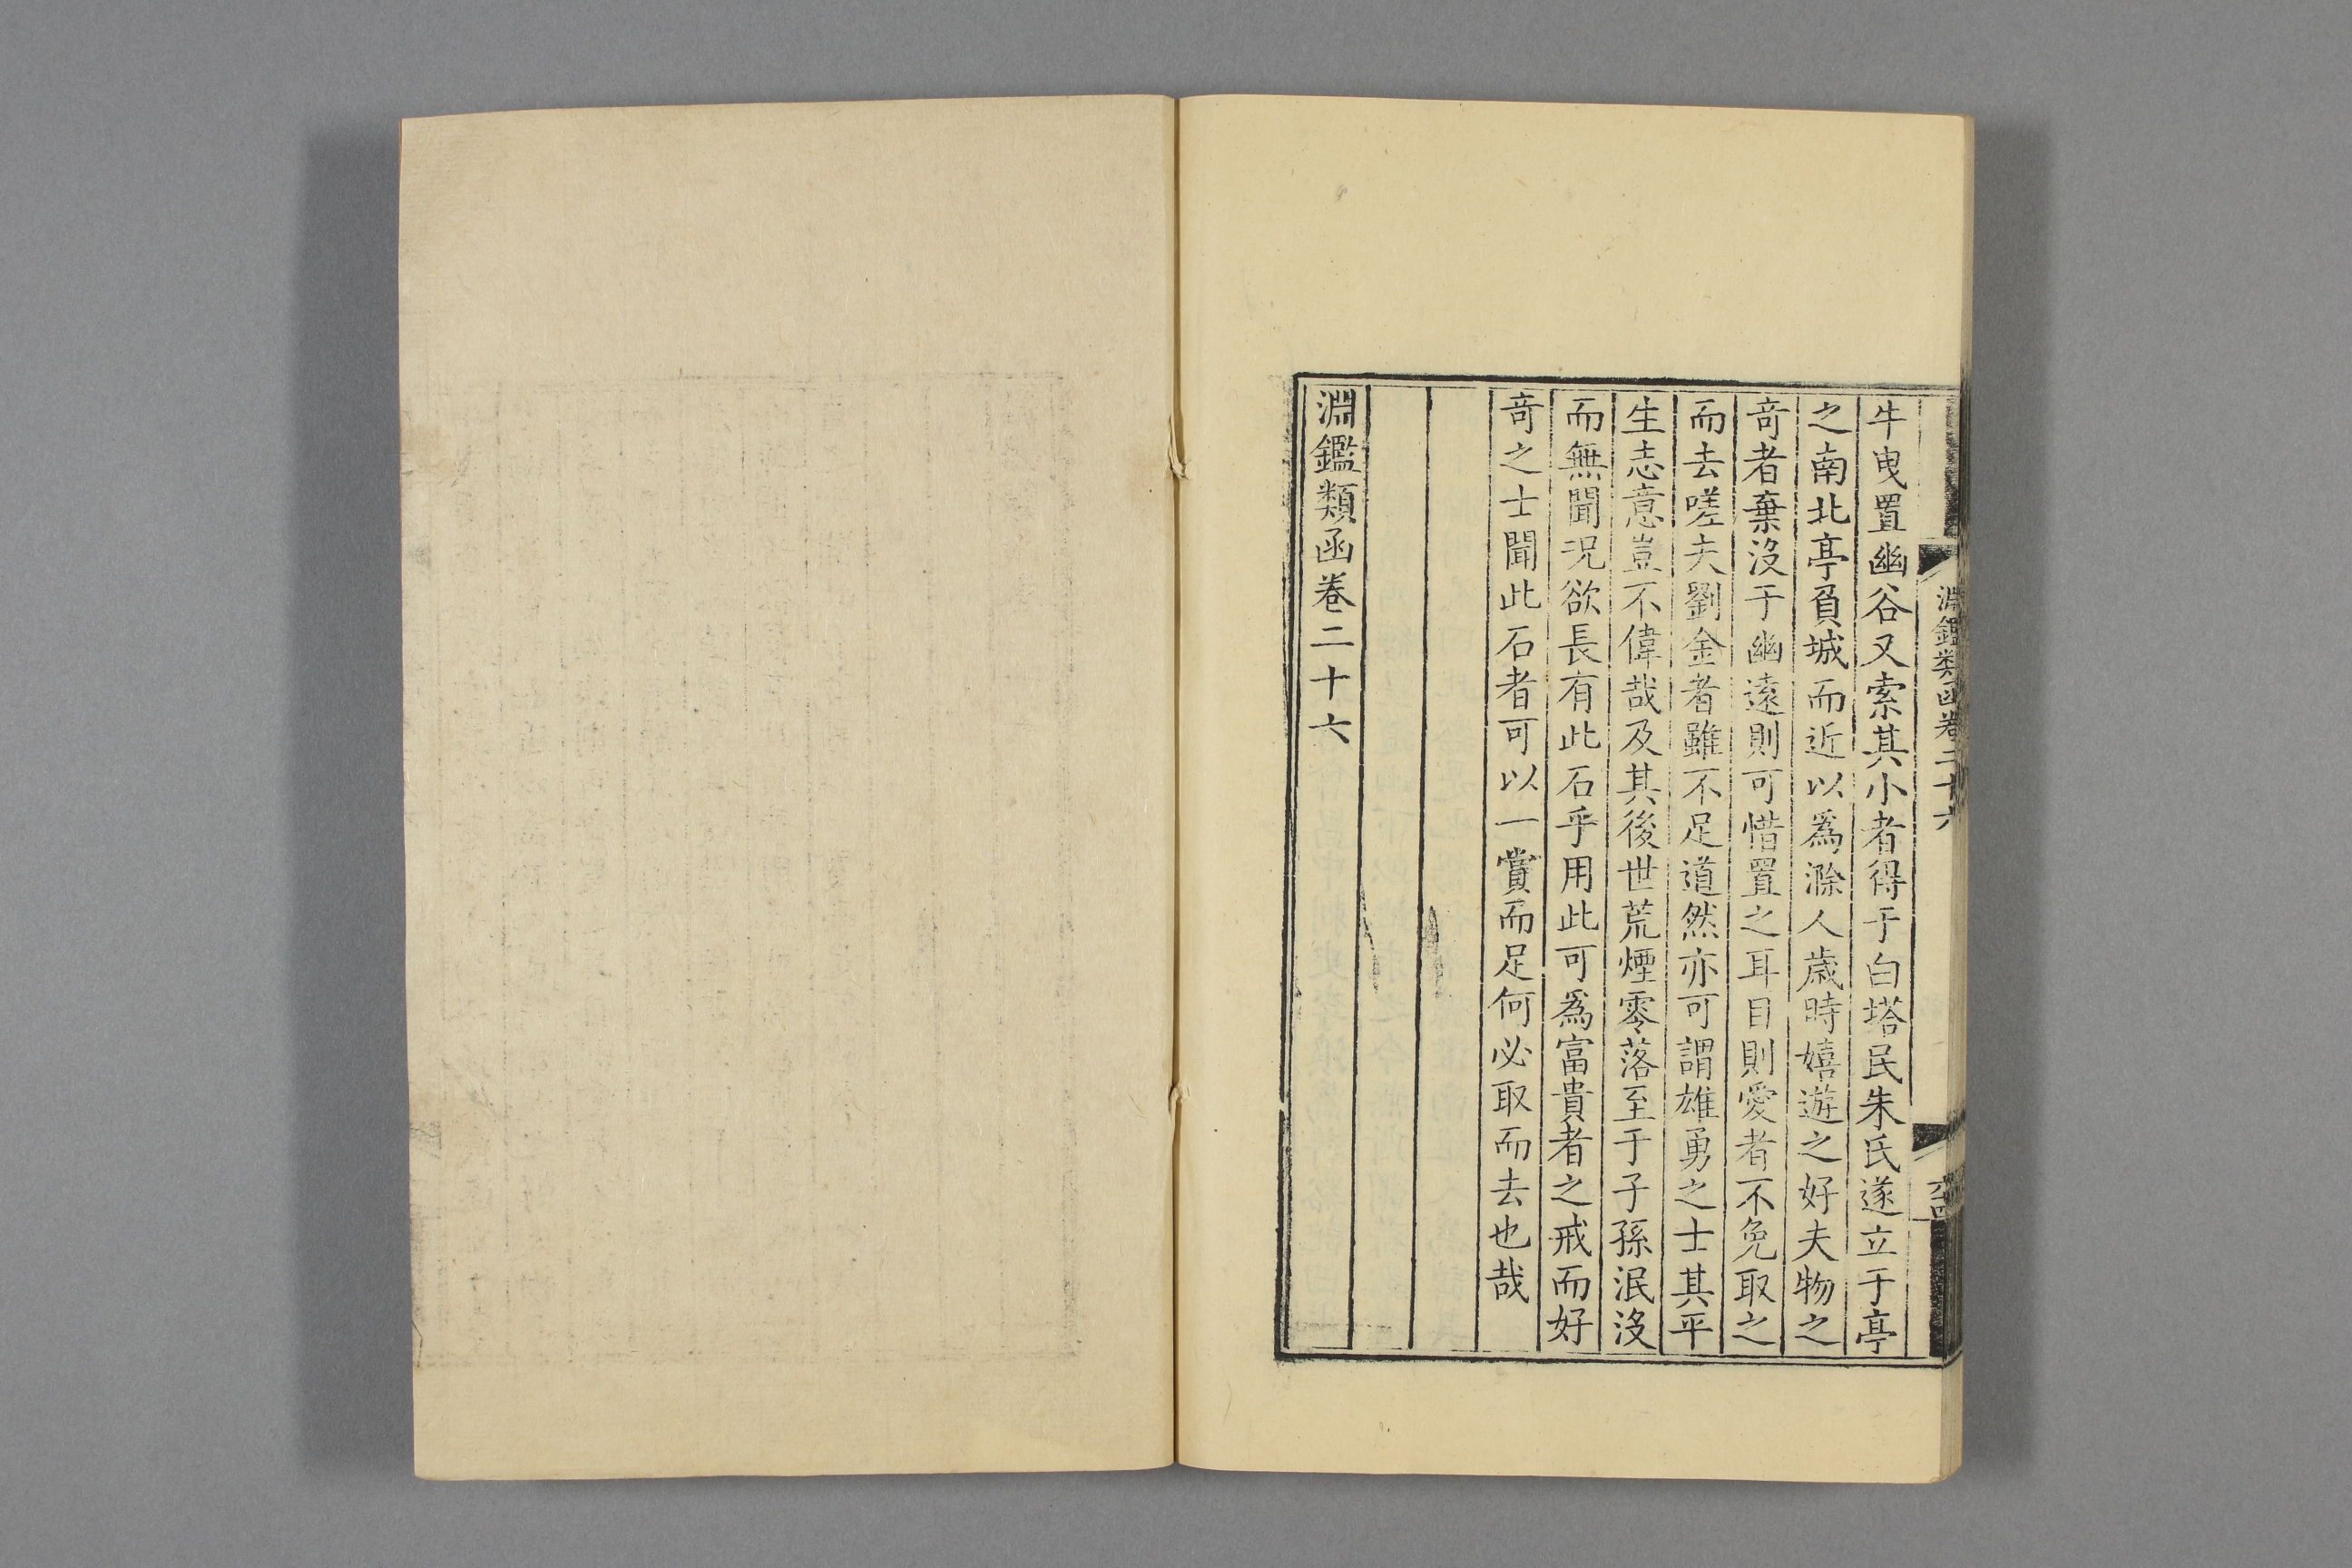 淵鑑類函卷二十六
牛曳置幽谷又索其小者得于白塔民朱氏遂立于亭
之南北亭負城而近以爲滁人歲時嬉遊之好夫物之
奇者棄沒于幽遠則可惜置之耳目則愛者不免取之
而去嗟夫劉金者雖不足道然亦可謂雄勇之士其平
生志意豈不偉哉及其後世荒煙零落至于子孫泯沒
而無聞况欲長有此石乎用此可爲富貴者之戒而好
奇之士聞此石者可以一賞而足何必取而去也哉
淵鑑類函卷二十六